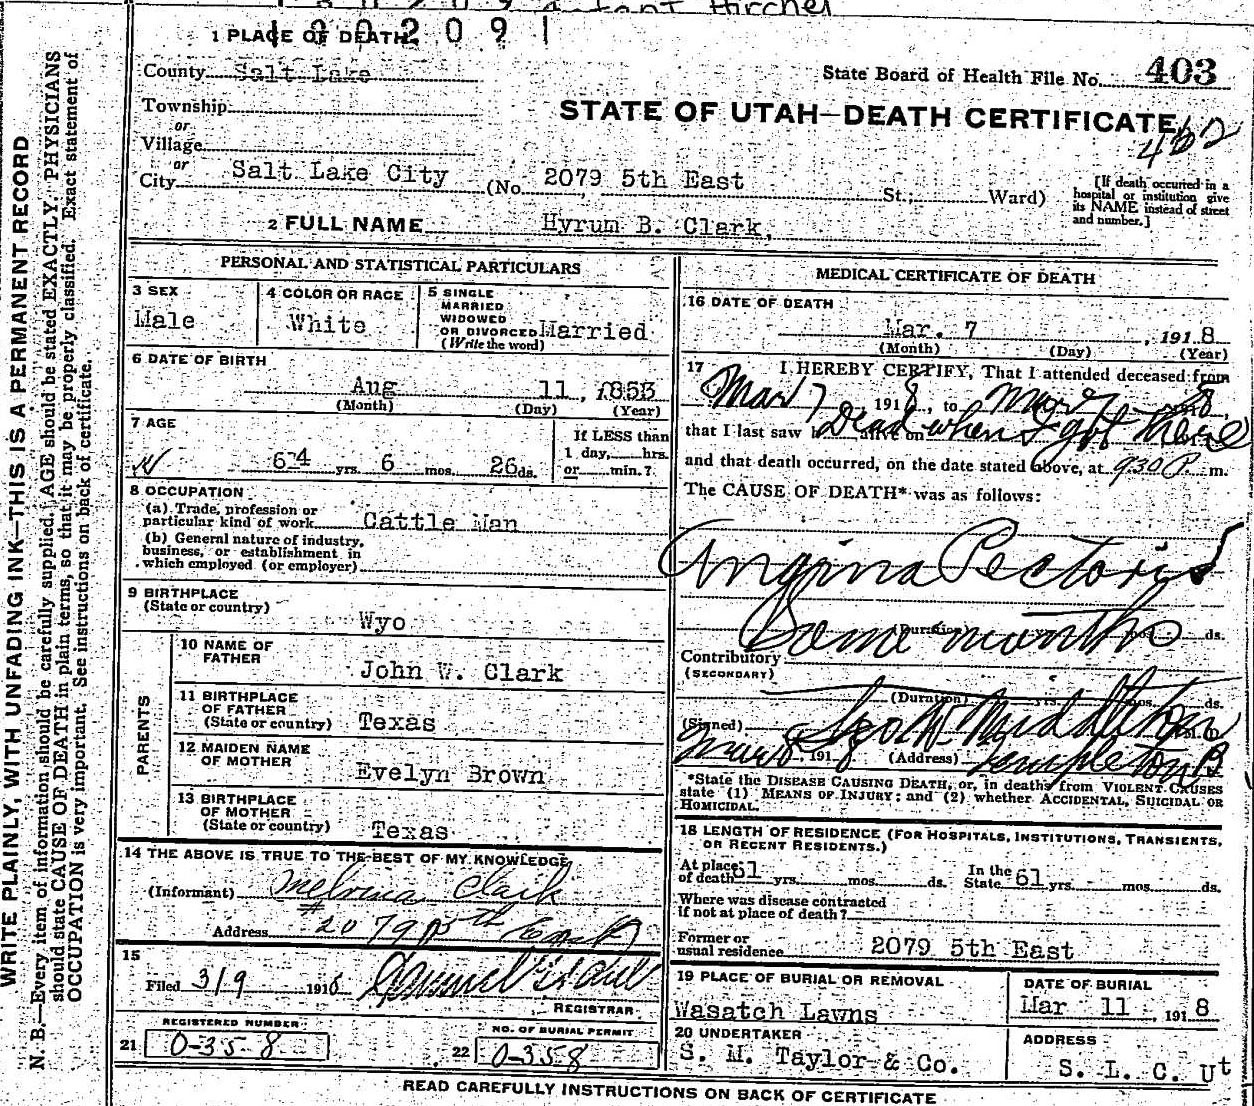 1 PLACE OF DEATH
1 2 0 2 0 9 1
County Salt Lake
State Board of Health File No. 403
Township
or
Village
or
City Salt Lake City (No. 2079 5th East St.; Ward)
STATE OF UTAH—DEATH CERTIFICATE
462
[If death occurred in a
hospital or institution give
its NAME instead of street
and number.]
2 FULL NAME Hyrum B. Clark,
PERSONAL AND STATISTICAL PARTICULARS
3 SEX
Male
4 COLOR OR RACE
White
5 SINGLE
MARRIED
WIDOWED
OR DIVORCED Married
(Write the word)
6 DATE OF BIRTH
Aug 11, 1853
(Month) (Day) (Year)
7 AGE
64 yrs. 6 mos. 26 ds.
If LESS than
1 day, hrs.
or min.?
8 OCCUPATION
(a) Trade, profession or
particular kind of work Cattle Man
(b) General nature of industry,
business, or establishment in
which employed (or employer)
9 BIRTHPLACE
(State or country)
Wyo
PARENTS
10 NAME OF
FATHER
John W. Clark
11 BIRTHPLACE
OF FATHER
(State or country) Texas
12 MAIDEN NAME
OF MOTHER
Evelyn Brown
13 BIRTHPLACE
OF MOTHER
(State or country) Texas
14 THE ABOVE IS TRUE TO THE BEST OF MY KNOWLEDGE
(Informant) Melvina Clark
Address # 2079 5th East
15
Filed 3/9 1918
REGISTRAR
REGISTERED NUMBER
21 0-358
NO. OF BURIAL PERMIT
22 0-358
MEDICAL CERTIFICATE OF DEATH
16 DATE OF DEATH
Mar. 7, 1918
(Month) (Day) (Year)
17 I HEREBY CERTIFY, That I attended deceased from
Mar 7 1918, to Mar 7 1918,
that I last saw alive on Dead when I got there
and that death occurred, on the date stated above, at 930 P. m.
The CAUSE OF DEATH* was as follows:
Angina Pectoris
Some months
(Duration) yrs. mos. ds.
Contributory
(SECONDARY)
(Duration) yrs. mos. ds.
(Signed) Geo W Middleton M.D.
Mar 8, 1918 (Address) Templeton B
*State the DISEASE CAUSING DEATH, or, in deaths from VIOLENT CAUSES
state (1) MEANS OF INJURY; and (2) whether ACCIDENTAL, SUICIDAL OR
HOMICIDAL.
18 LENGTH OF RESIDENCE (FOR HOSPITALS, INSTITUTIONS, TRANSIENTS,
OR RECENT RESIDENTS.)
At place
of death 61 yrs. mos. ds.
In the
State 61 yrs. mos. ds.
Where was disease contracted
if not at place of death?
Former or
usual residence 2079 5th East
19 PLACE OF BURIAL OR REMOVAL
Wasatch Lawns
DATE OF BURIAL
Mar 11, 1918
20 UNDERTAKER
S. M. Taylor & Co.
ADDRESS
S. L. C. Ut
READ CAREFULLY INSTRUCTIONS ON BACK OF CERTIFICATE
WRITE PLAINLY, WITH UNFADING INK—THIS IS A PERMANENT RECORD
N. B.—Every item of information should be carefully supplied. AGE should be stated EXACTLY. PHYSICIANS
should state CAUSE OF DEATH in plain terms, so that it may be properly classified. Exact statement of
OCCUPATION is very important. See instructions on back of certificate.